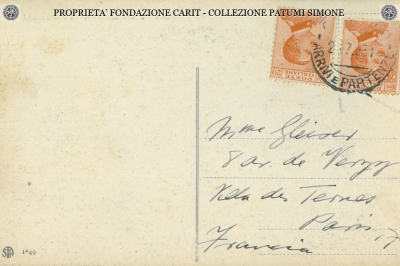 PROPRIETA' FONDAZIONE CARIT - COLLEZIONE PATUMI SIMONE
ARRIVI E PARTENZE
Mme Gleiser
8 av. de Verzy
Villa des Ternes
Paris, 17
Francia